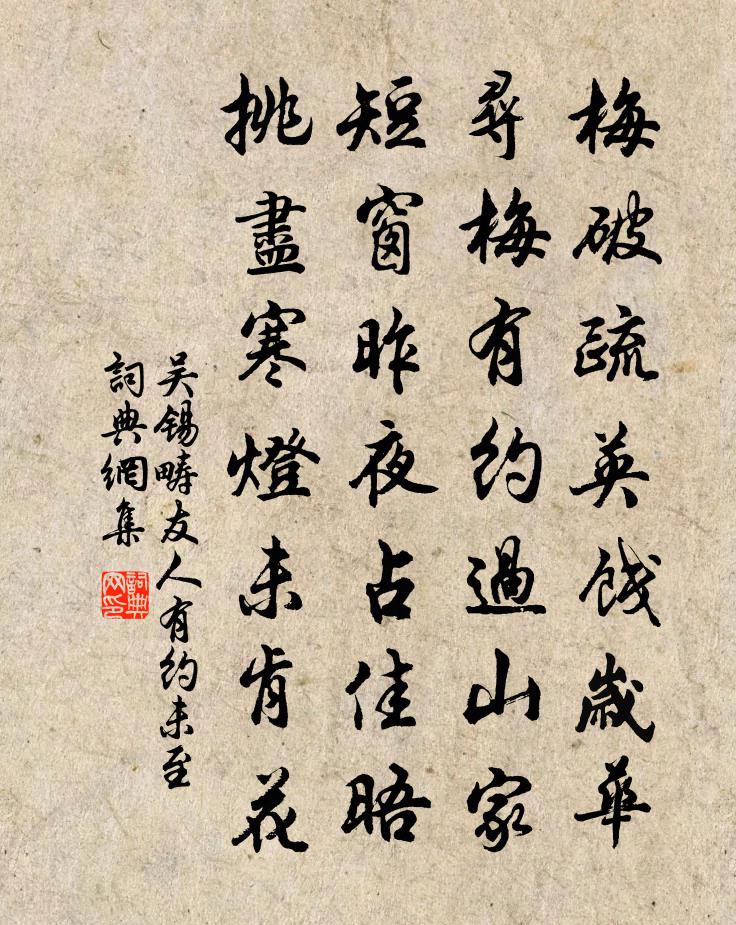 梅破疏英餞歲華
尋梅有約過山家
短窗昨夜占佳晤
挑盡寒燈未肯花
吴錫疇友人有約未至
詞典網集
詞典網印